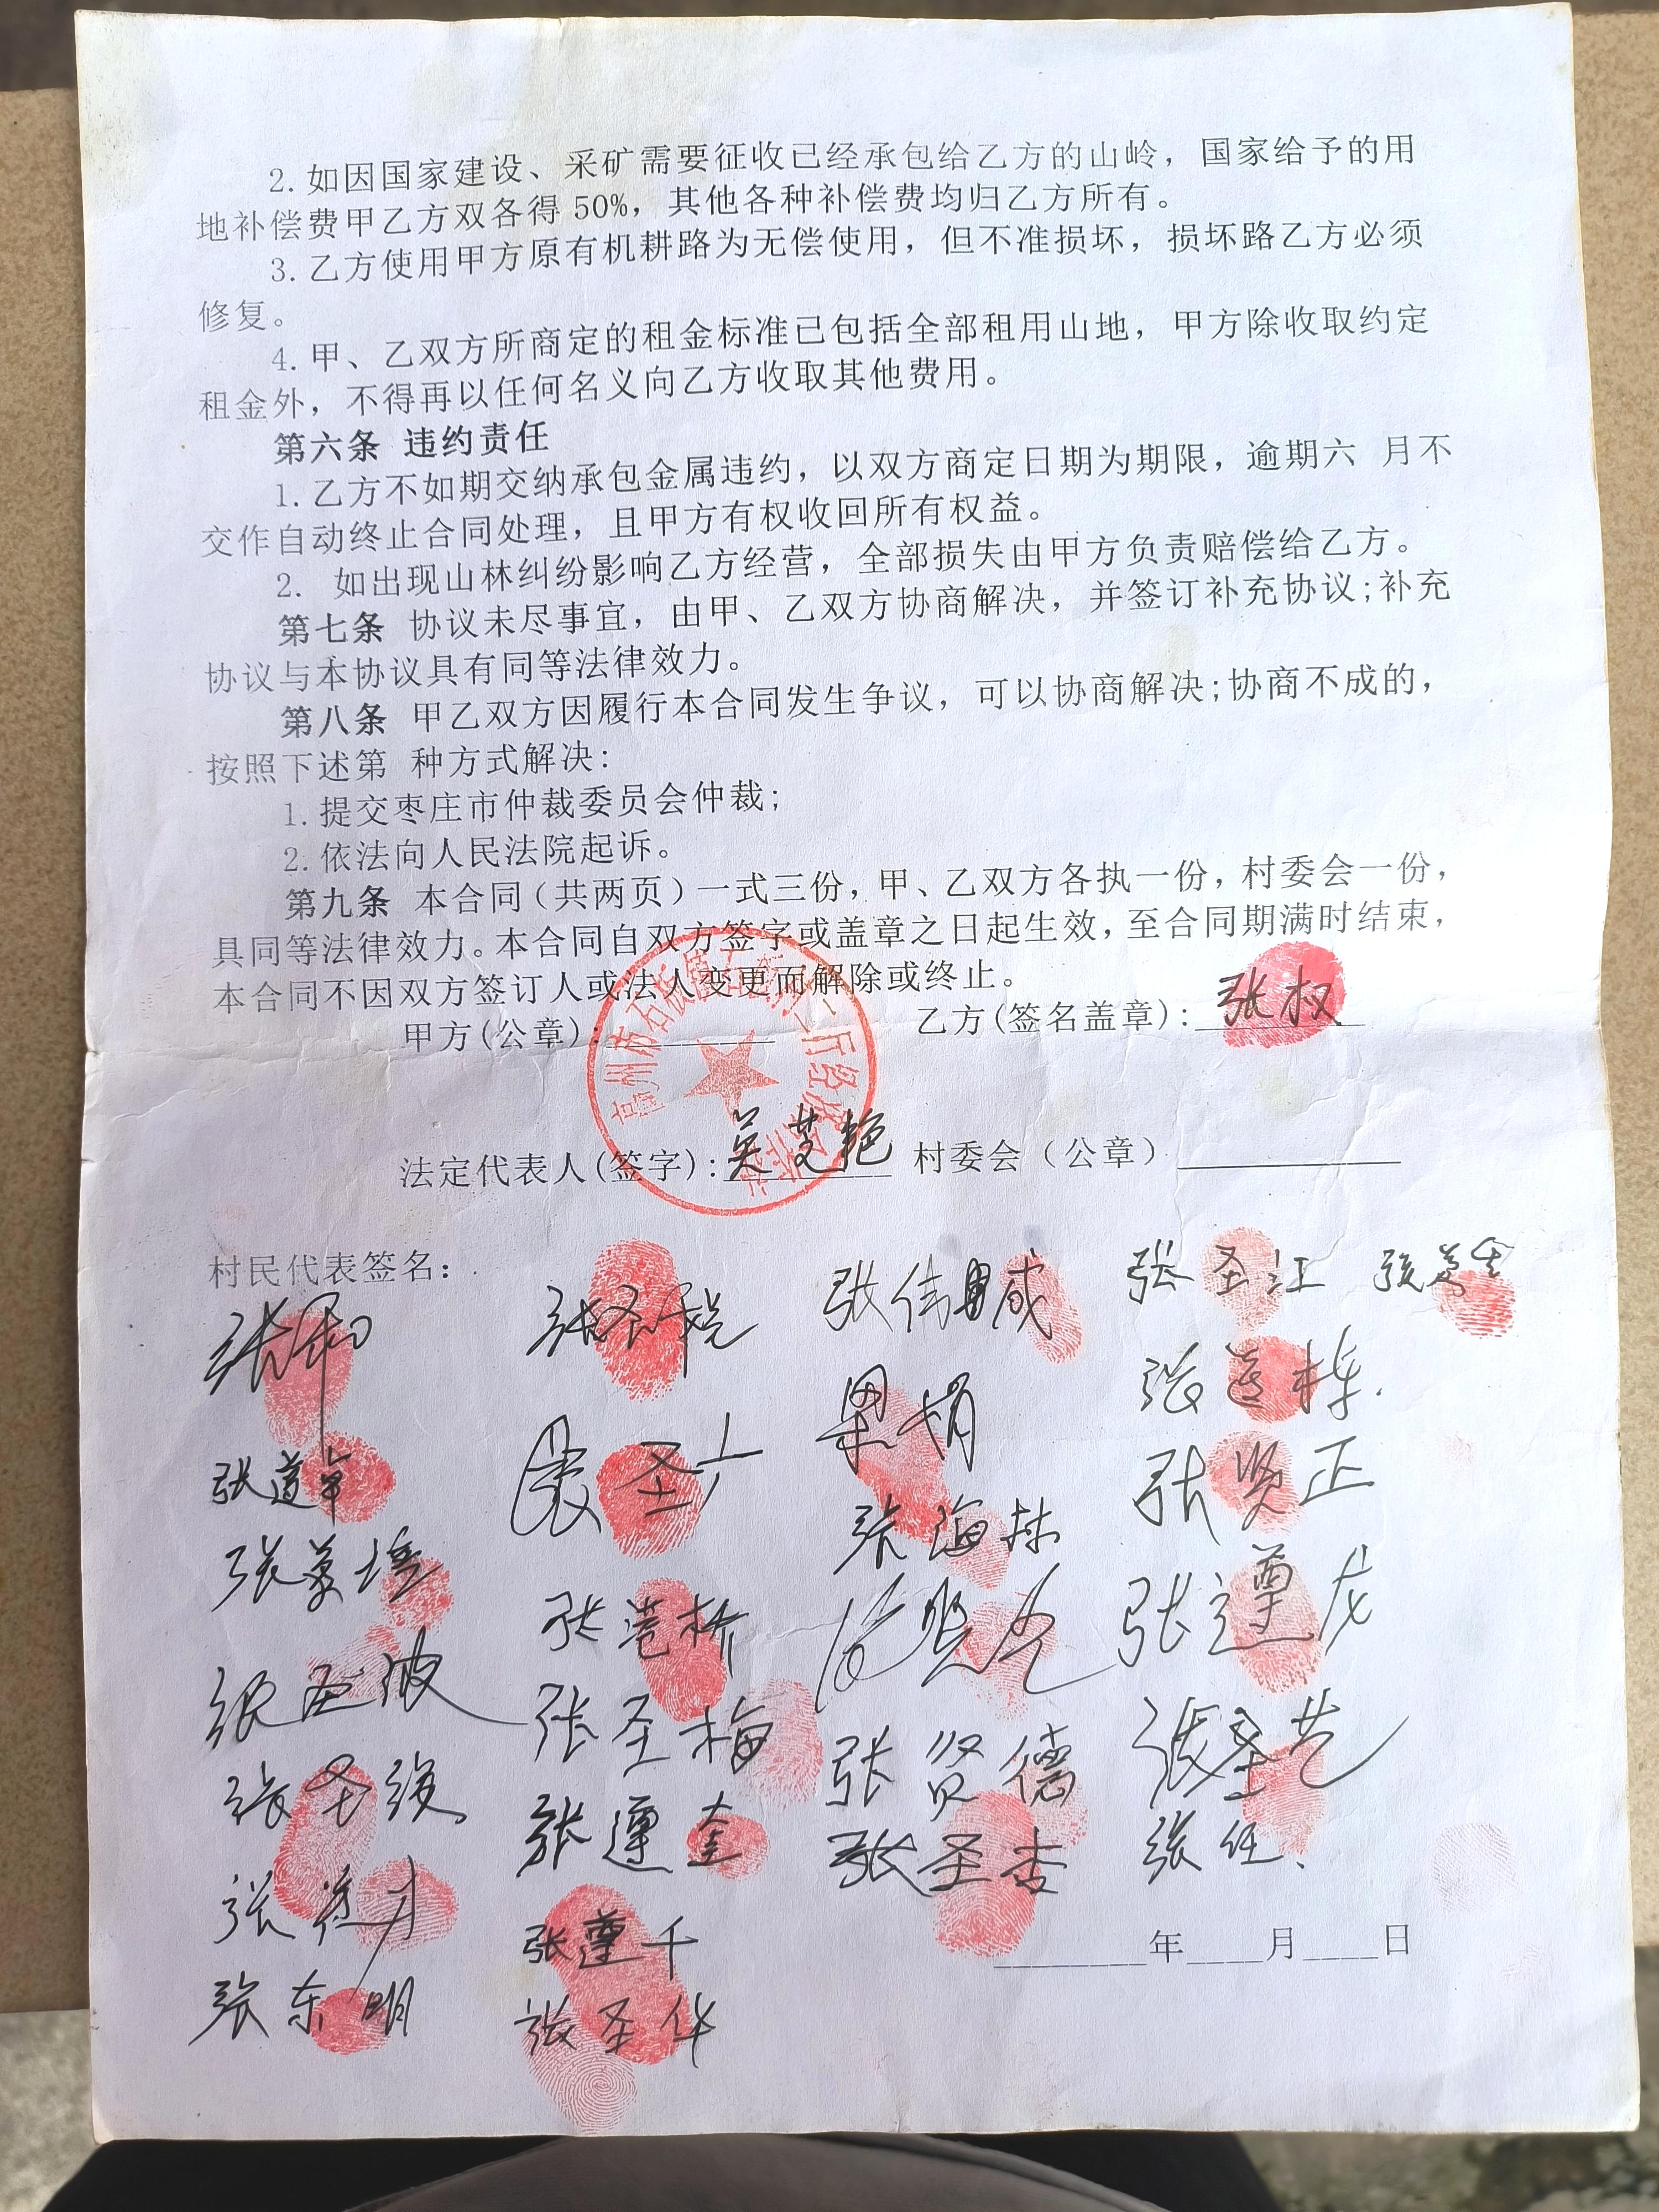 2. 如因国家建设、采矿需要征收已经承包给乙方的山岭，国家给予的用
地补偿费甲乙方双各得 50%，其他各种补偿费均归乙方所有。
3. 乙方使用甲方原有机耕路为无偿使用，但不准损坏，损坏路乙方必须
修复。
4. 甲、乙双方所商定的租金标准已包括全部租用山地，甲方除收取约定
租金外，不得再以任何名义向乙方收取其他费用。
第六条 违约责任
1. 乙方不如期交纳承包金属违约，以双方商定日期为期限，逾期六 月不
交作自动终止合同处理，且甲方有权收回所有权益。
2. 如出现山林纠纷影响乙方经营，全部损失由甲方负责赔偿给乙方。
第七条 协议未尽事宜，由甲、乙双方协商解决，并签订补充协议;补充
协议与本协议具有同等法律效力。
第八条 甲乙双方因履行本合同发生争议，可以协商解决;协商不成的，
按照下述第 种方式解决:
1. 提交枣庄市仲裁委员会仲裁;
2. 依法向人民法院起诉。
第九条 本合同（共两页）一式三份，甲、乙双方各执一份，村委会一份，
具同等法律效力。本合同自双方签字或盖章之日起生效，至合同期满时结束，
本合同不因双方签订人或法人变更而解除或终止。
甲方(公章): 乙方(签名盖章): 张权
高州市石板镇
法定代表人(签字): 吴艾艳 村委会（公章）
村民代表签名：
张圣江
张伟
张道栋
张圣
张贤正
张海林
张遵龙
张圣波
张圣梅
张贤德
张圣艺
张遵奎
张圣杏
张任
张遵千
年 月 日
张东明
张圣华